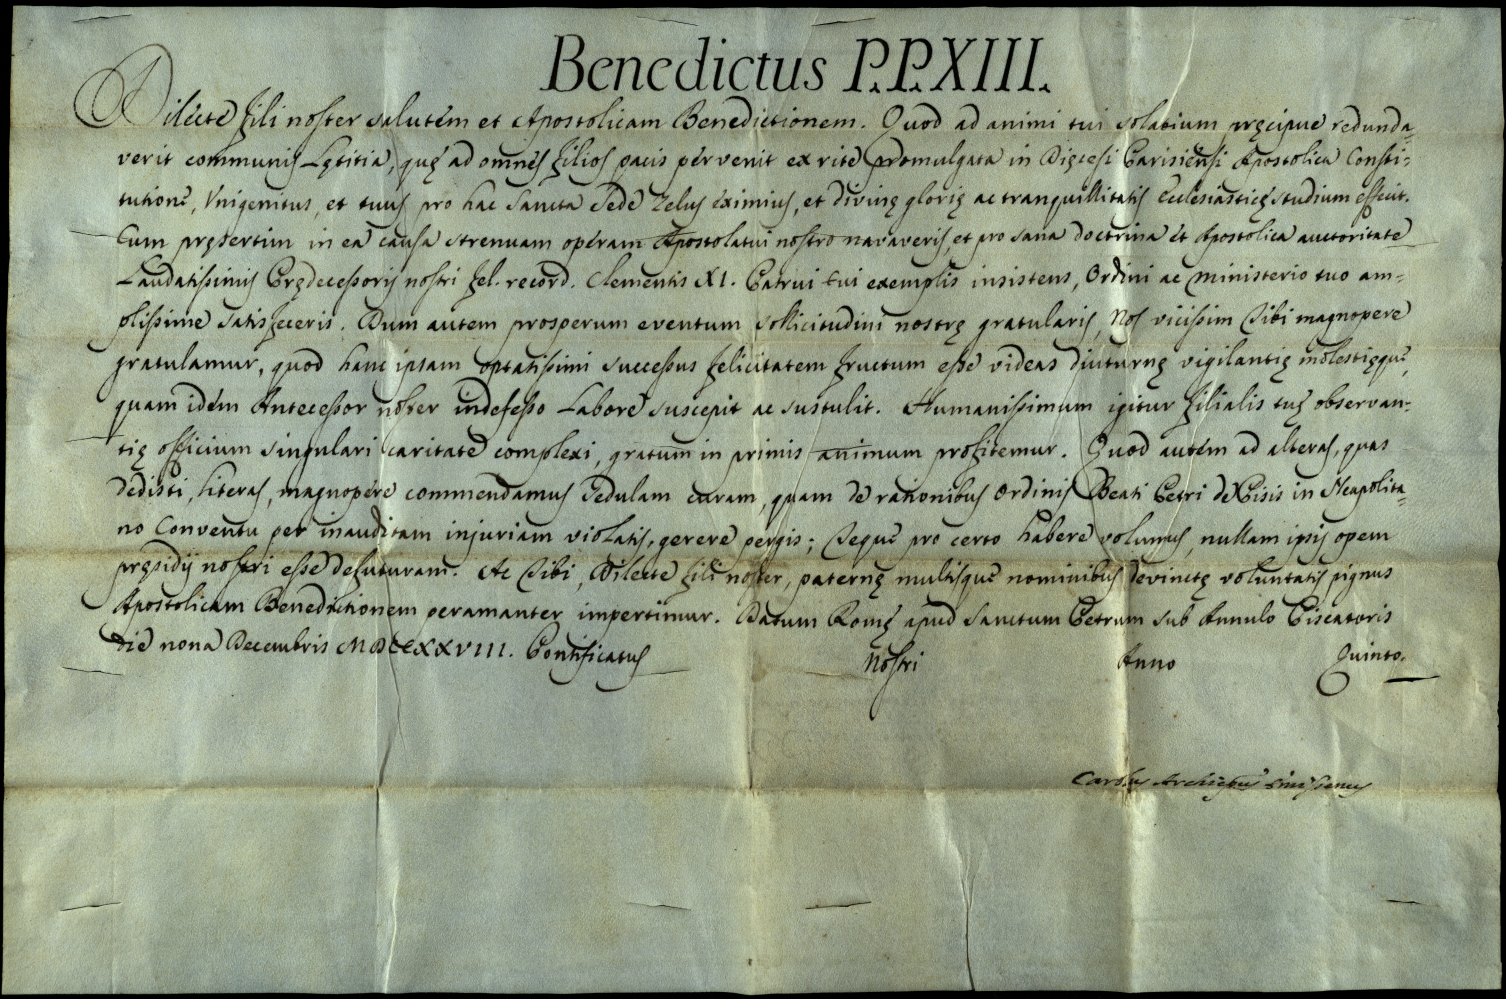 Benedictus P.P. XIII.
Dilecte fili noster salutem et Apostolicam Benedictionem. Quod ad animi tui solatium pręcipue redunda-
verit communis Lętitia, quę ad omnes filios pacis pervenit ex rite promulgata in Dięcesi Parisiensi Apostolica Consti-
tutione, Unigenitus, et tuus pro hac Sancta Sede Zelus eximius, et divinę glorię ac tranquillitatis Ecclesiasticę studium effecit.
Cum pręsertim in ea causa strenuam operam Apostolatui nostro navaveris, et pro sana doctrina et Apostolica auctoritate
Laudatissimis Prędecessoris nostri fel. record. Clementis XI. Patrui tui exemplis insistens, Ordini ac ministerio tuo am-
plissime satisfeceris. Dum autem prosperum eventum sollicitudini nostrę gratularis, Nos vicissim Tibi magnopere
gratulamur, quod hanc ipsam optatissimi successus felicitatem fructum esse videas diuturnę vigilantię molestięque,
quam idem Antecessor noster indefesso Labore suscepit ac sustulit. Humanissimum igitur filialis tuę observan-
tię officium singulari caritate complexi, gratum in primis animum profitemur. Quod autem ad alteras, quas
dedisti, literas, magnopere commendamus sedulam curam, quam de rationibus Ordinis Beati Petri de Pisis in Neapolita-
no Conventu per inauditam injuriam violatis, gerere pergis; Teque pro certo habere volumus, nullam ipsis opem
pręsidij nostri esse defuturam. Ac Tibi, Dilecte fili noster, paternę multisque nominibus devinctę voluntatis pignus
Apostolicam Benedictionem peramanter impertimur. Datum Romę apud Sanctum Petrum sub Annulo Piscatoris
die nona Decembris MDCCXXVIII. Pontificatus nostri Anno Quinto.
Carolus Archiepus Emissenus